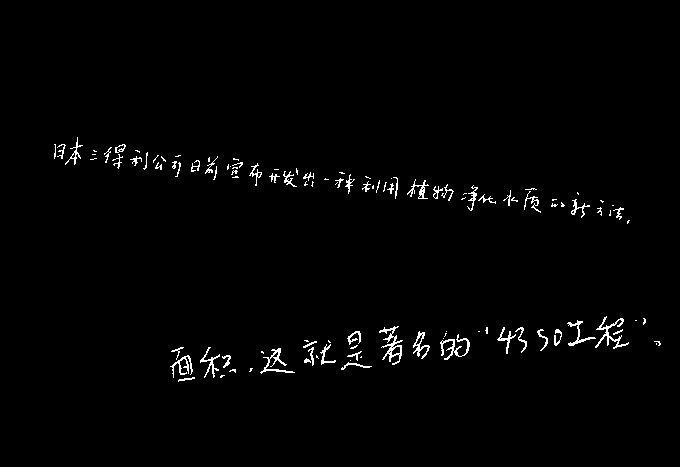 日本三得利公司日前宣布开发出一种利用植物净化水质的新方法,
面积,这就是著名的“4350工程”。